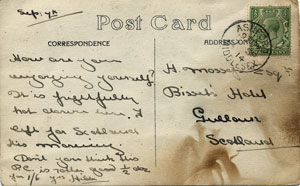 Sep. 7th
Post Card
CORRESPONDENCE
ADDRESS ON
How are you
enjoying yourself?
It is frightfully
hot down here. I
left for Scotland
this morning
Don't you think this
P.C. is rather good ½ doz
for 1/6 yrs Hilda
H. Moss Esq
Bisset's Hotel
Gullane
Scotland